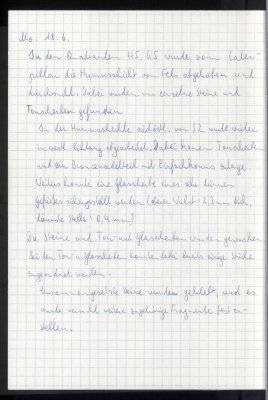 Mo. 18.6.
In den Quadranten H5, G5 wurde vom Cater-
pillar die Humusschicht vom Fels abgehoben und
durchsucht. Dabei wurden nur einzelne Steine und
Tonscherben gefunden
In der Humusschichte südöstl. von S2 wurde weiter
in westl. Richtung abgearbeitet. Dabei kamen Tonscherben
und ein Bronzenadelteil mit zutage.
Weiters konnte eine Glasscherbe eines sehr dünnen
Gefäßes sichergestellt werden (oberer Wulst: 2,3 mm,
dünnste Stelle: 0,4 mm)
Die Steine und Ton- und Glasscherben wurden gewaschen
Bei den Ton- u. Glasscherben konnten dabei bereits einige Stücke
zugeordnet werden.
Zusammengesetzte Steine wurden geklebt, und es
wurde versucht weitere zugehörige Fragmente festzu-
stellen.